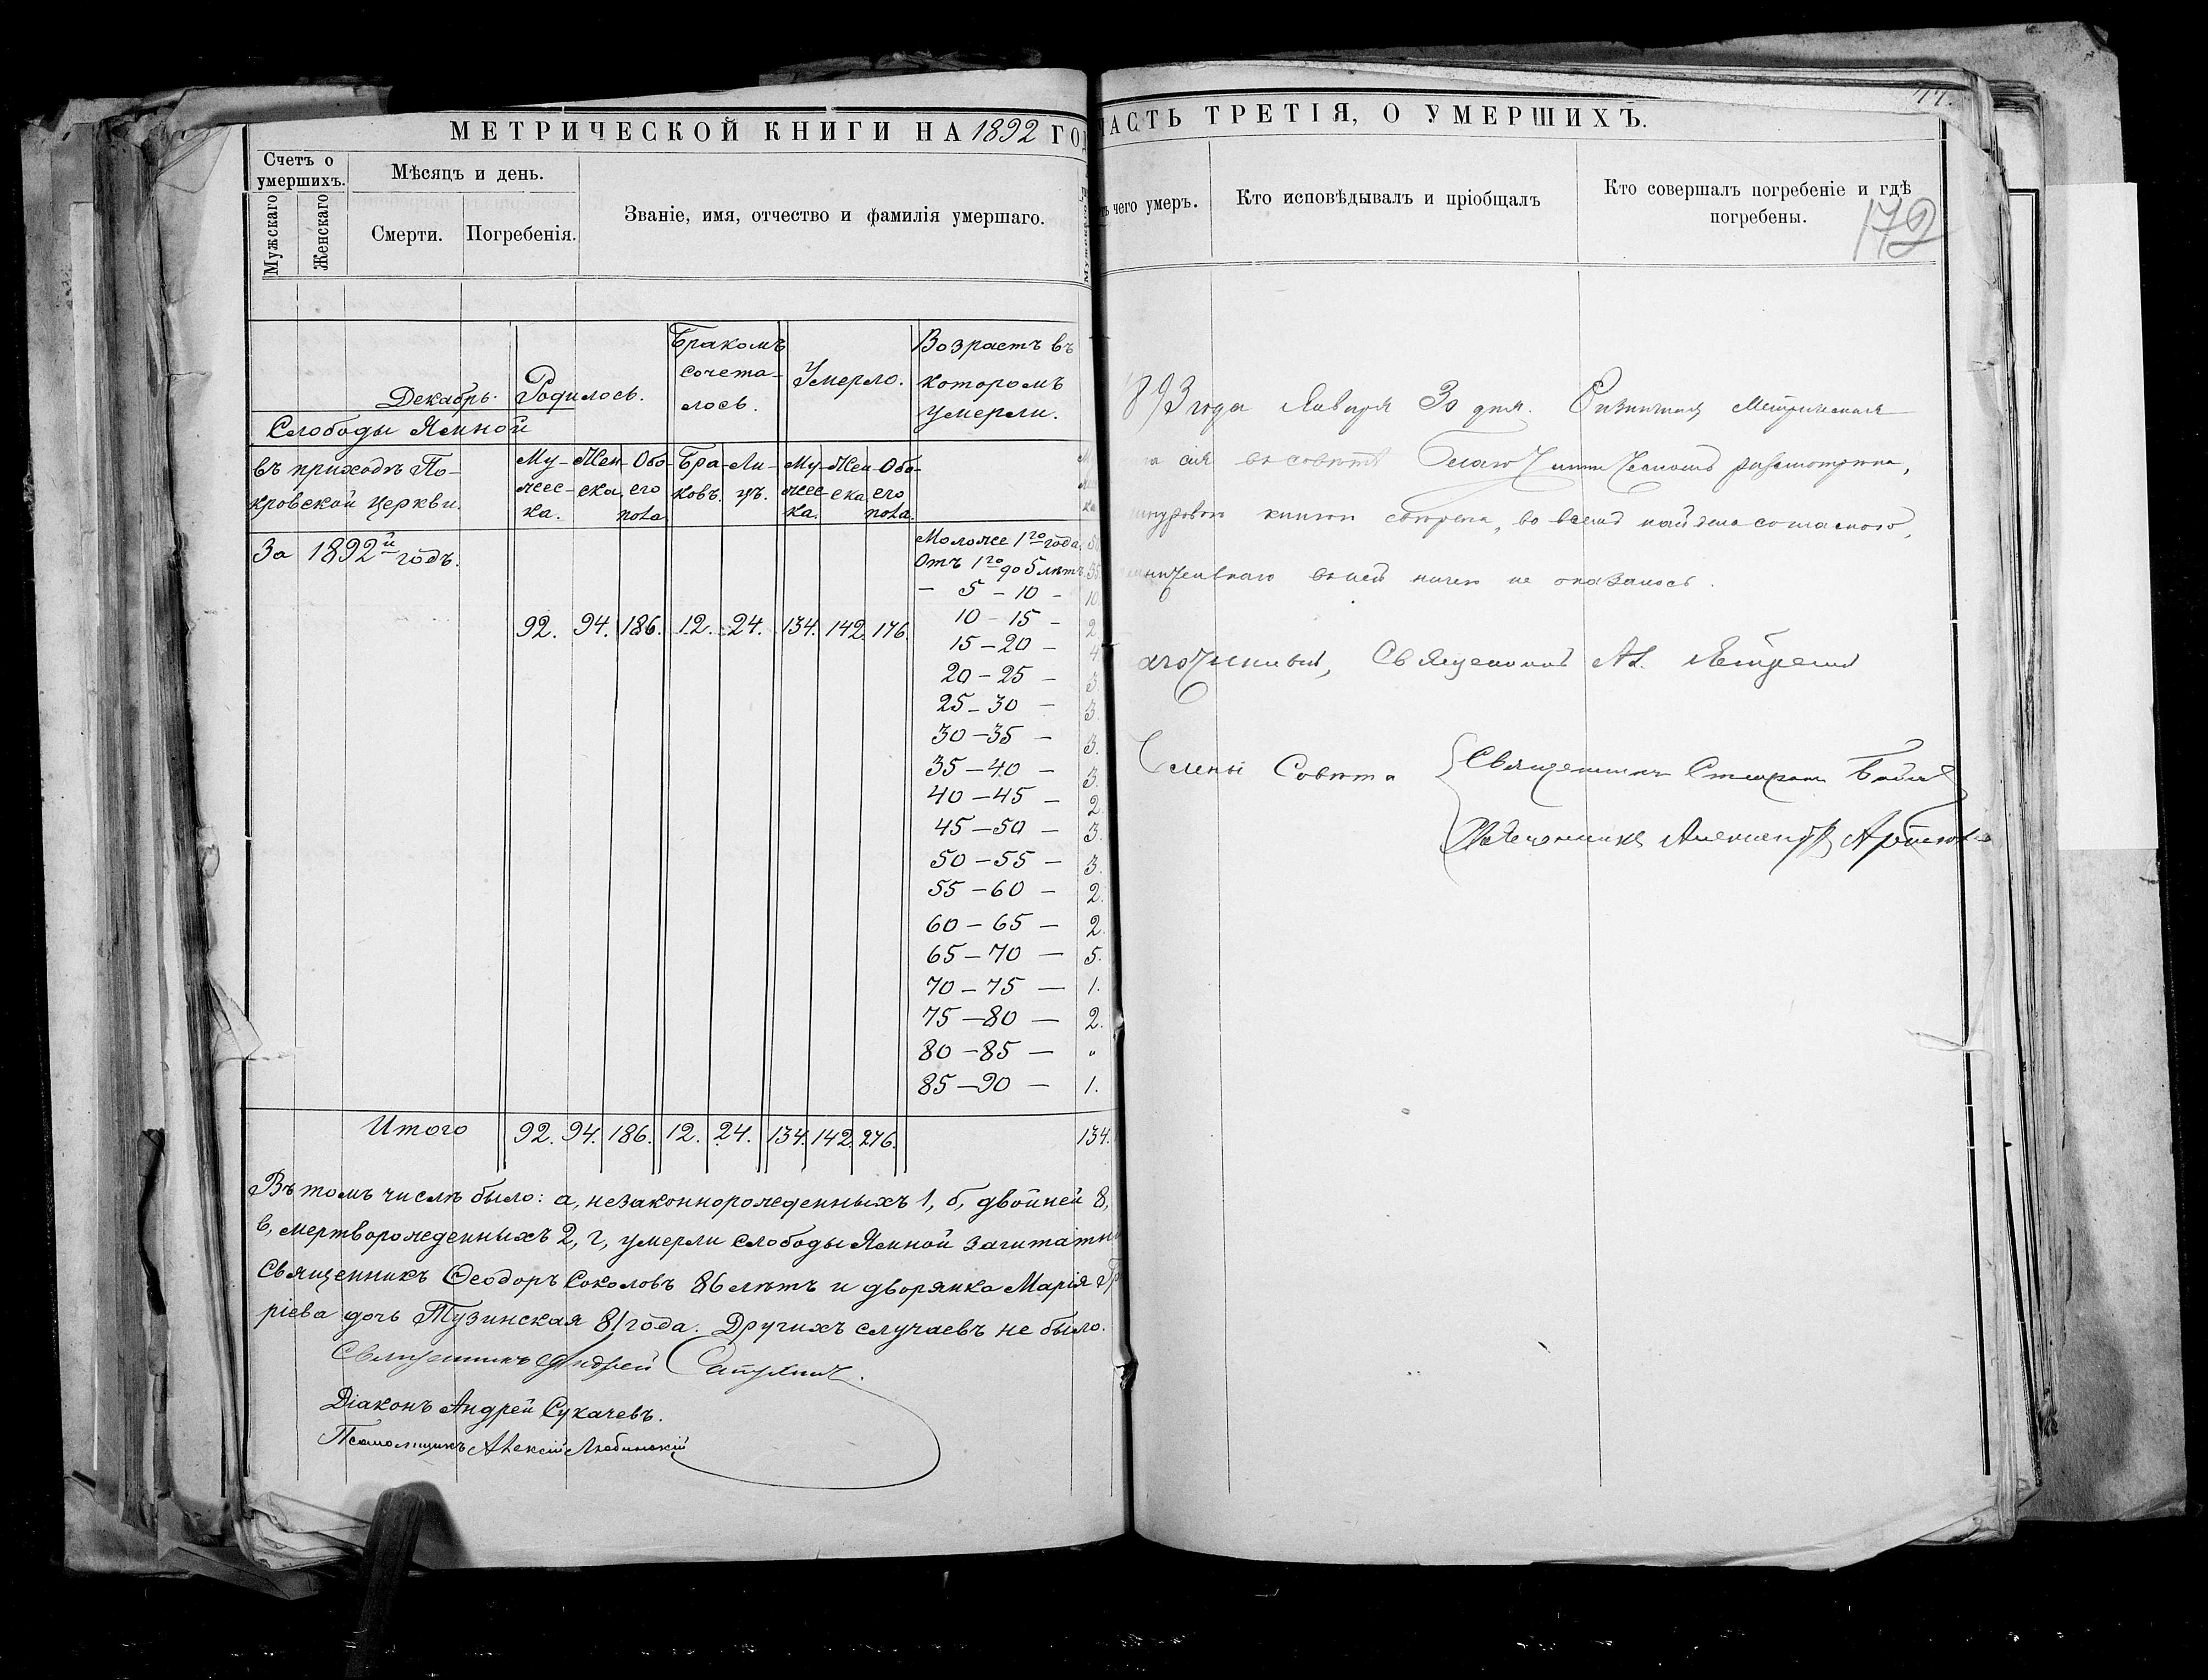 МЕТРИЧЕСКОЙ КНИГИ НА 1892 ГОД
Счетъ о умершихъ.
Мужскаго
Женскаго
Мѣсяцъ и день.
Смерти.
Погребенія.
Званіе, имя, отчество и фамилія умершаго.
Декабрь.
Слободы Ямной
въ приходѣ По-
кровской церкви.
За 1892й годъ.
Родилось.
Бракомъ
сочета-
лось.
Умерло.
Возрастъ въ
которомъ
умерли.
Му- Жен- Обо- Бра- Ли- Му- Жен- Обо-
жес- ска. его ковъ. цъ. жес- ска его
ка. пола. ка. пола.
92. 94. 186. 12. 24. 134. 142. 176.
Моложе 1го года.
Отъ 1го до 5 лѣтъ
— 5 — 10 — 10
10 — 15 — 2
15 — 20 — 4
20 — 25 — 3.
25 — 30 — 3.
30 — 35 — 3.
35 — 40 — 3.
40 — 45 — 2
45 — 50 — 3.
50 — 55 — 3.
55 — 60 — 2.
60 — 65 — 2.
65 — 70 — 5.
70 — 75 — 1.
75 — 80 — 2.
80 — 85 — „
85 — 90 — 1.
Итого 92. 94. 186. 12. 24. 134. 142. 276. 134.
Въ томъ числѣ было: а, незаконнорожденныхъ 1, б, двойней 8,
в, мертворожденныхъ 2, г, умерли слободы Ямной заштатн
Священникъ Ѳеодоръ Соколовъ 86 лѣтъ и дворянка Марія Гр
ріева дочь Тузинская 81 года. Другихъ случаевъ не было.
Священникъ Андрей
Діаконъ Андрей Сукачевъ.
Псаломщикъ Алексій Любинскій
ЧАСТЬ ТРЕТІЯ, О УМЕРШИХЪ.
77.
чего умеръ.
Кто исповѣдывалъ и пріобщалъ
Кто совершалъ погребеніе и гдѣ
погребены.
172
1893 года Января 30 дня. Метрическая
сія въ совѣтѣ разсмотрѣна,
книгою свѣрена, во всемъ найдена согласною,
въ ней ничего не оказалось.
Священникъ Ал.
Члены Совѣта
Священникъ
Священникъ Александръ